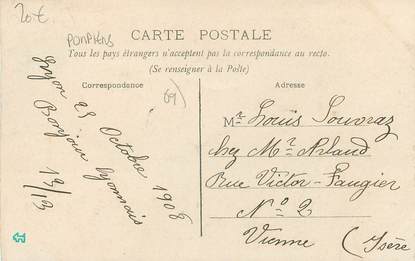 20 €
POMPIERS
CARTE POSTALE
Tous les pays étrangers n'acceptent pas la correspondance au recto.
(Se renseigner à la Poste)
Correspondance
Adresse
69
Lyon 25 Octobre 1908
Bonjour Lyonnais
13/13
Mr. Louis Souvraz
chez Mr. Arland
Rue Victor-Faugier
No 2
Vienne (Isère